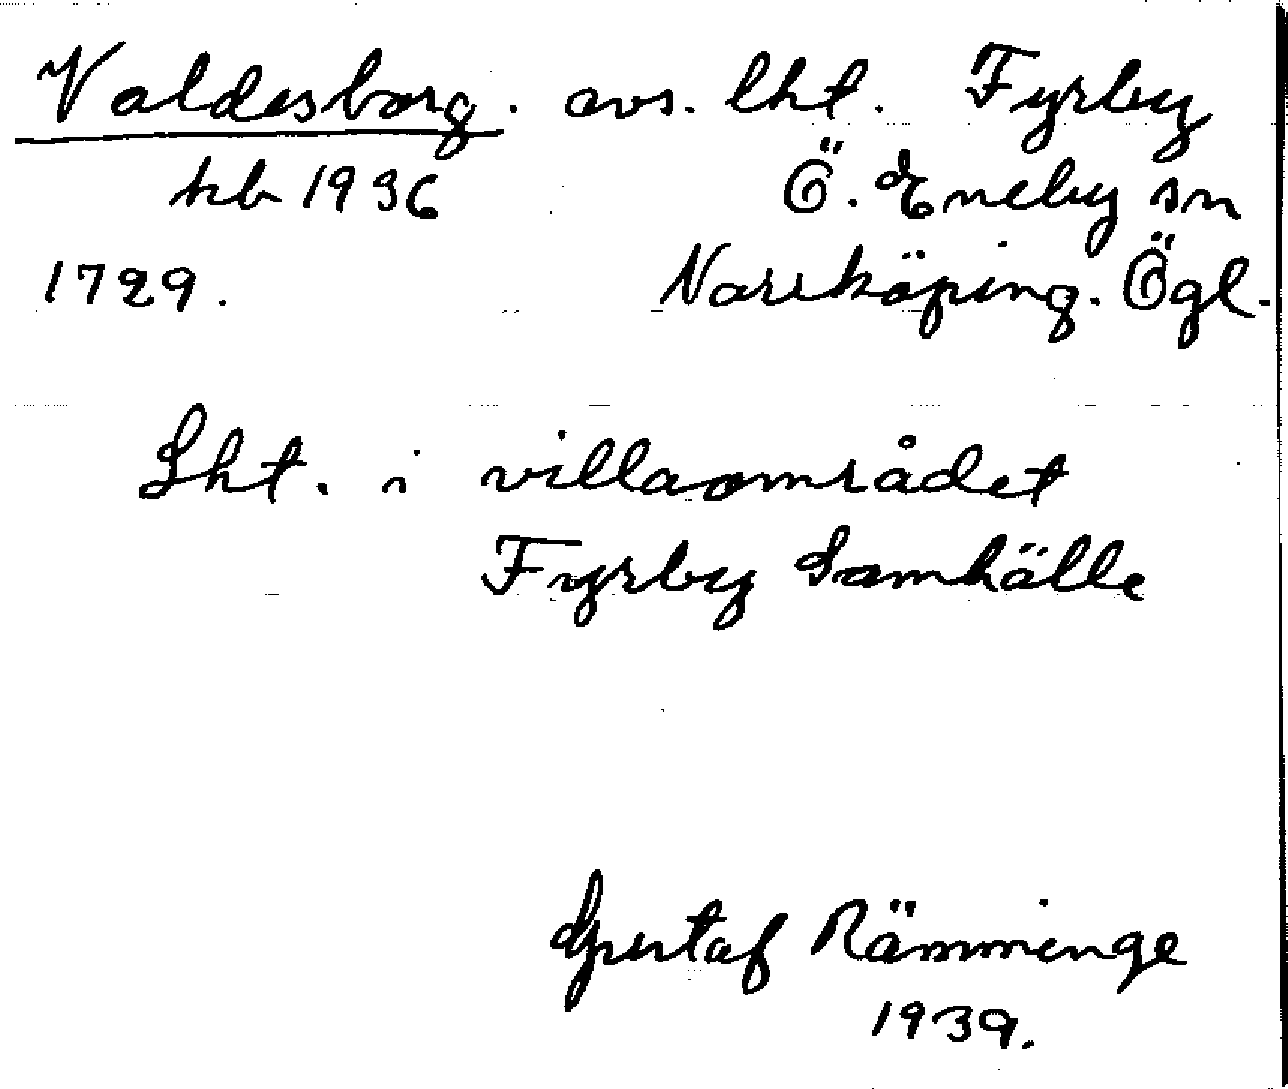 Valdesborg. avs. lht. Fyrby
kb 1936 Ö. Eneby sn
1729. Norrköping. Ögl.
Lht. i villaområdet
Fyrby Samhälle
Gustaf Rämminge
1939.